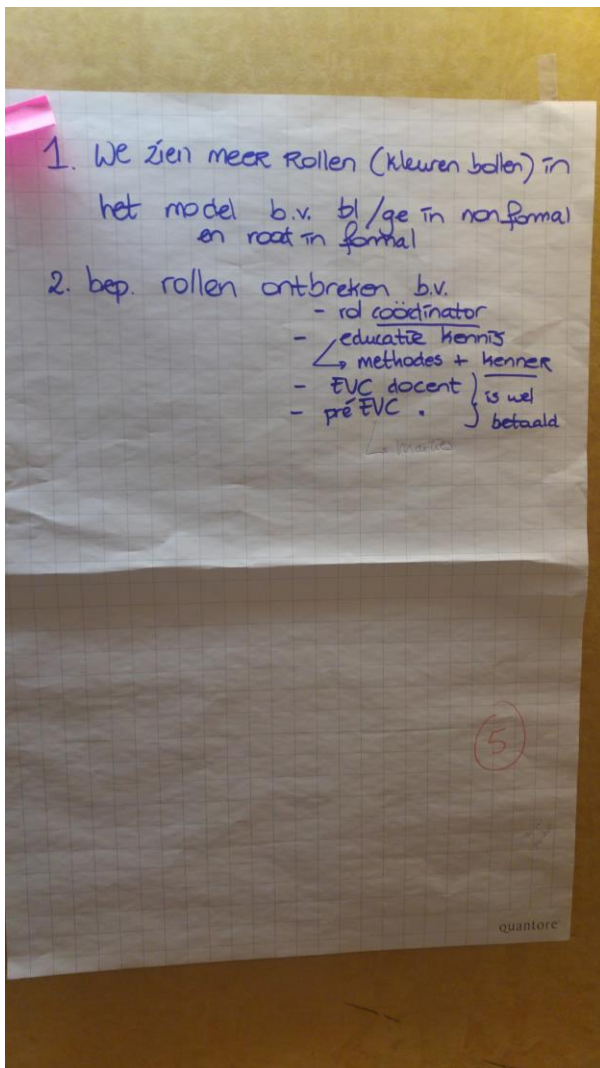 1. We zien meer Rollen (kleuren bollen) in
het model b.v. bl/ge in non formal
en rood in formal
2. bep. rollen ontbreken b.v.
- rol coödinator
- educatie kennis
↳ methodes + kenner
- EVC docent } is wel
- pré EVC . } betaald
5
quantore